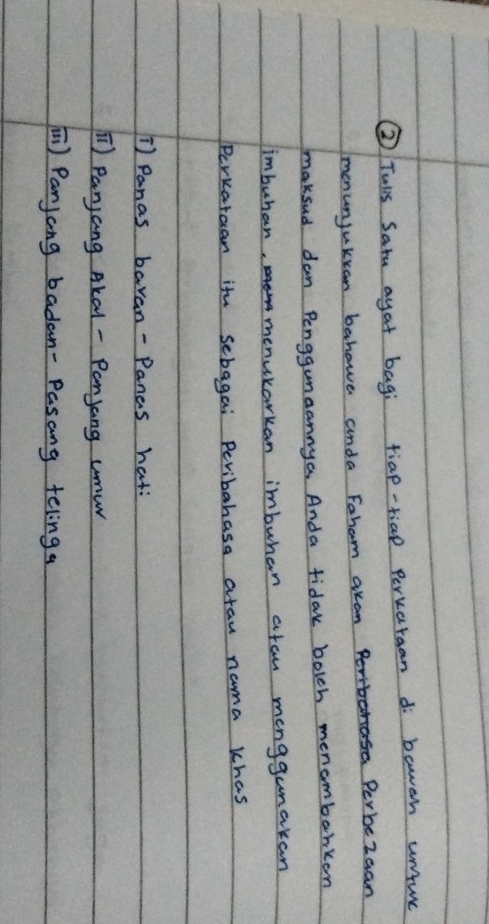 ② Tulis satu ayat bagi tiap-tiap Perkataan di bawah untuk
menunjukkan bahawa anda Faham akan Peribahasa Perbezaan
maksud dan Penggunaannya Anda tidak boleh menambahkan
imbuhan, menukarkan imbuhan atau menggunakan
Perkataan itu sebagai Peribahasa atau nama khas
i) Panas baran - Panas hati
ii) Panjang Akal - Panjang umur
iii) Panjang badan - Pasang telinga